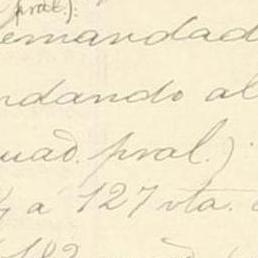 pral.).
emandad
ndando al
uad. pral.).
a 127 vta.
182